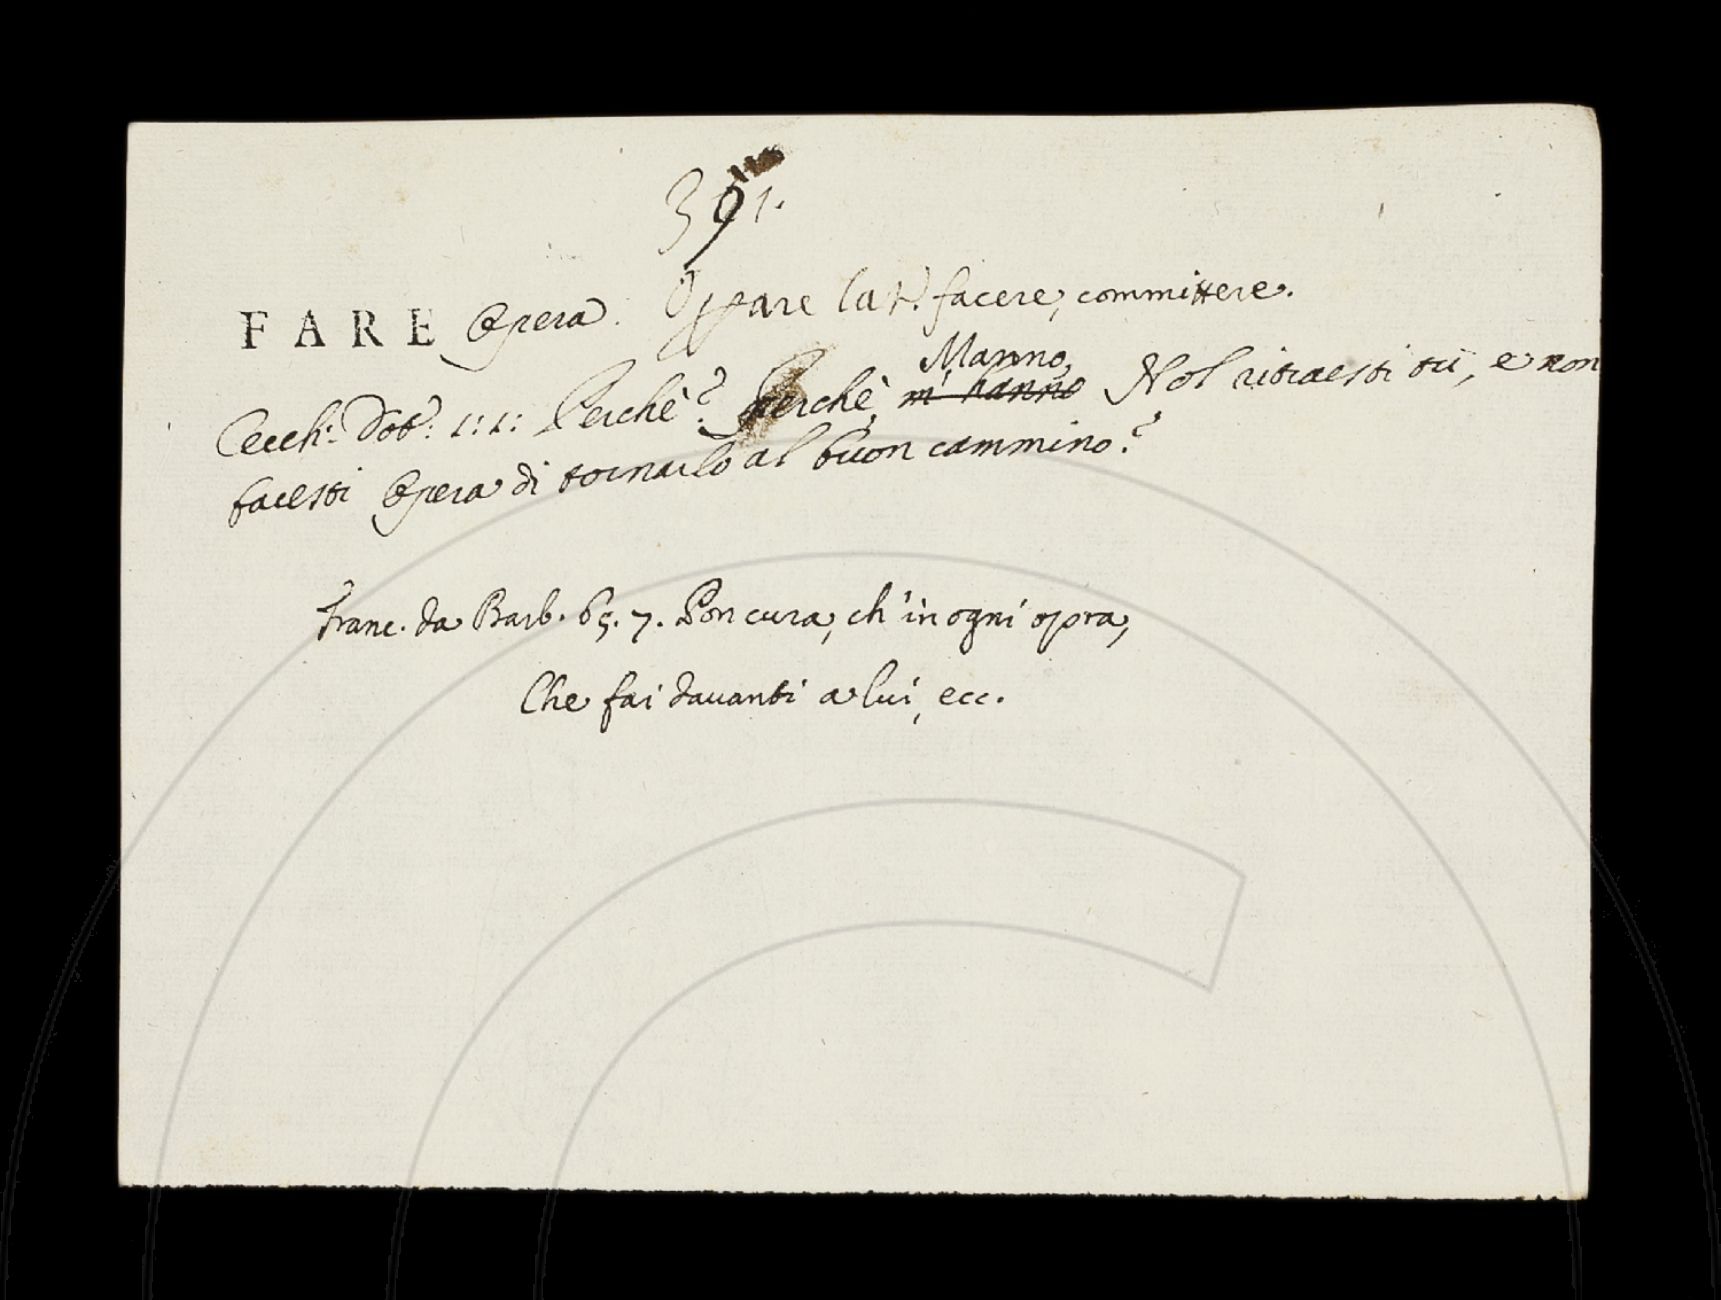 391.
FARE Opera. Oprare lat. facere, committere.
Manno,
Cecch: Dot: 1:1: Perchè? Perchè, m' hanno Nol ritraesti tù, e non
facesti Opera di tornarlo al buon cammino?
Franc. da Barb. 65. 7. Pon cura, ch' in ogni opra,
Che fai dauanti a lui, ecc.